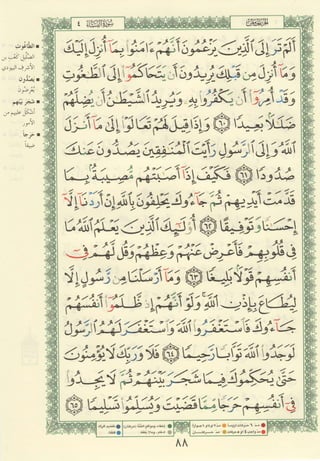 سورة النساء ٤
أَلَمْ تَرَ إِلَى ٱلَّذِينَ يَزْعُمُونَ أَنَّهُمْ ءَامَنُوا۟ بِمَآ أُنزِلَ إِلَيْكَ
وَمَآ أُنزِلَ مِن قَبْلِكَ يُرِيدُونَ أَن يَتَحَاكَمُوٓا۟ إِلَى ٱلطَّـٰغُوتِ
وَقَدْ أُمِرُوٓا۟ أَن يَكْفُرُوا۟ بِهِۦ وَيُرِيدُ ٱلشَّيْطَـٰنُ أَن يُضِلَّهُمْ
ضَلَـٰلًۢا بَعِيدًا ٦٠ وَإِذَا قِيلَ لَهُمْ تَعَالَوْا۟ إِلَىٰ مَآ أَنزَلَ
ٱللَّهُ وَإِلَى ٱلرَّسُولِ رَأَيْتَ ٱلْمُنَـٰفِقِينَ يَصُدُّونَ عَنكَ
صُدُودًا ٦١ فَكَيْفَ إِذَآ أَصَـٰبَتْهُم مُّصِيبَةٌۢ بِمَا
قَدَّمَتْ أَيْدِيهِمْ ثُمَّ جَآءُوكَ يَحْلِفُونَ بِٱللَّهِ إِنْ أَرَدْنَآ إِلَّآ
إِحْسَـٰنًا وَتَوْفِيقًا ٦٢ أُو۟لَـٰٓئِكَ ٱلَّذِينَ يَعْلَمُ ٱللَّهُ مَا
فِى قُلُوبِهِمْ فَأَعْرِضْ عَنْهُمْ وَعِظْهُمْ وَقُل لَّهُمْ فِىٓ
أَنفُسِهِمْ قَوْلًۢا بَلِيغًا ٦٣ وَمَآ أَرْسَلْنَا مِن رَّسُولٍ إِلَّا
لِيُطَاعَ بِإِذْنِ ٱللَّهِ وَلَوْ أَنَّهُمْ إِذ ظَّلَمُوٓا۟ أَنفُسَهُمْ
جَآءُوكَ فَٱسْتَغْفَرُوا۟ ٱللَّهَ وَٱسْتَغْفَرَ لَهُمُ ٱلرَّسُولُ
لَوَجَدُوا۟ ٱللَّهَ تَوَّابًا رَّحِيمًا ٦٤ فَلَا وَرَبِّكَ لَا يُؤْمِنُونَ
حَتَّىٰ يُحَكِّمُوكَ فِيمَا شَجَرَ بَيْنَهُمْ ثُمَّ لَا يَجِدُوا۟
فِىٓ أَنفُسِهِمْ حَرَجًا مِّمَّا قَضَيْتَ وَيُسَلِّمُوا۟ تَسْلِيمًا ٦٥
٨٨